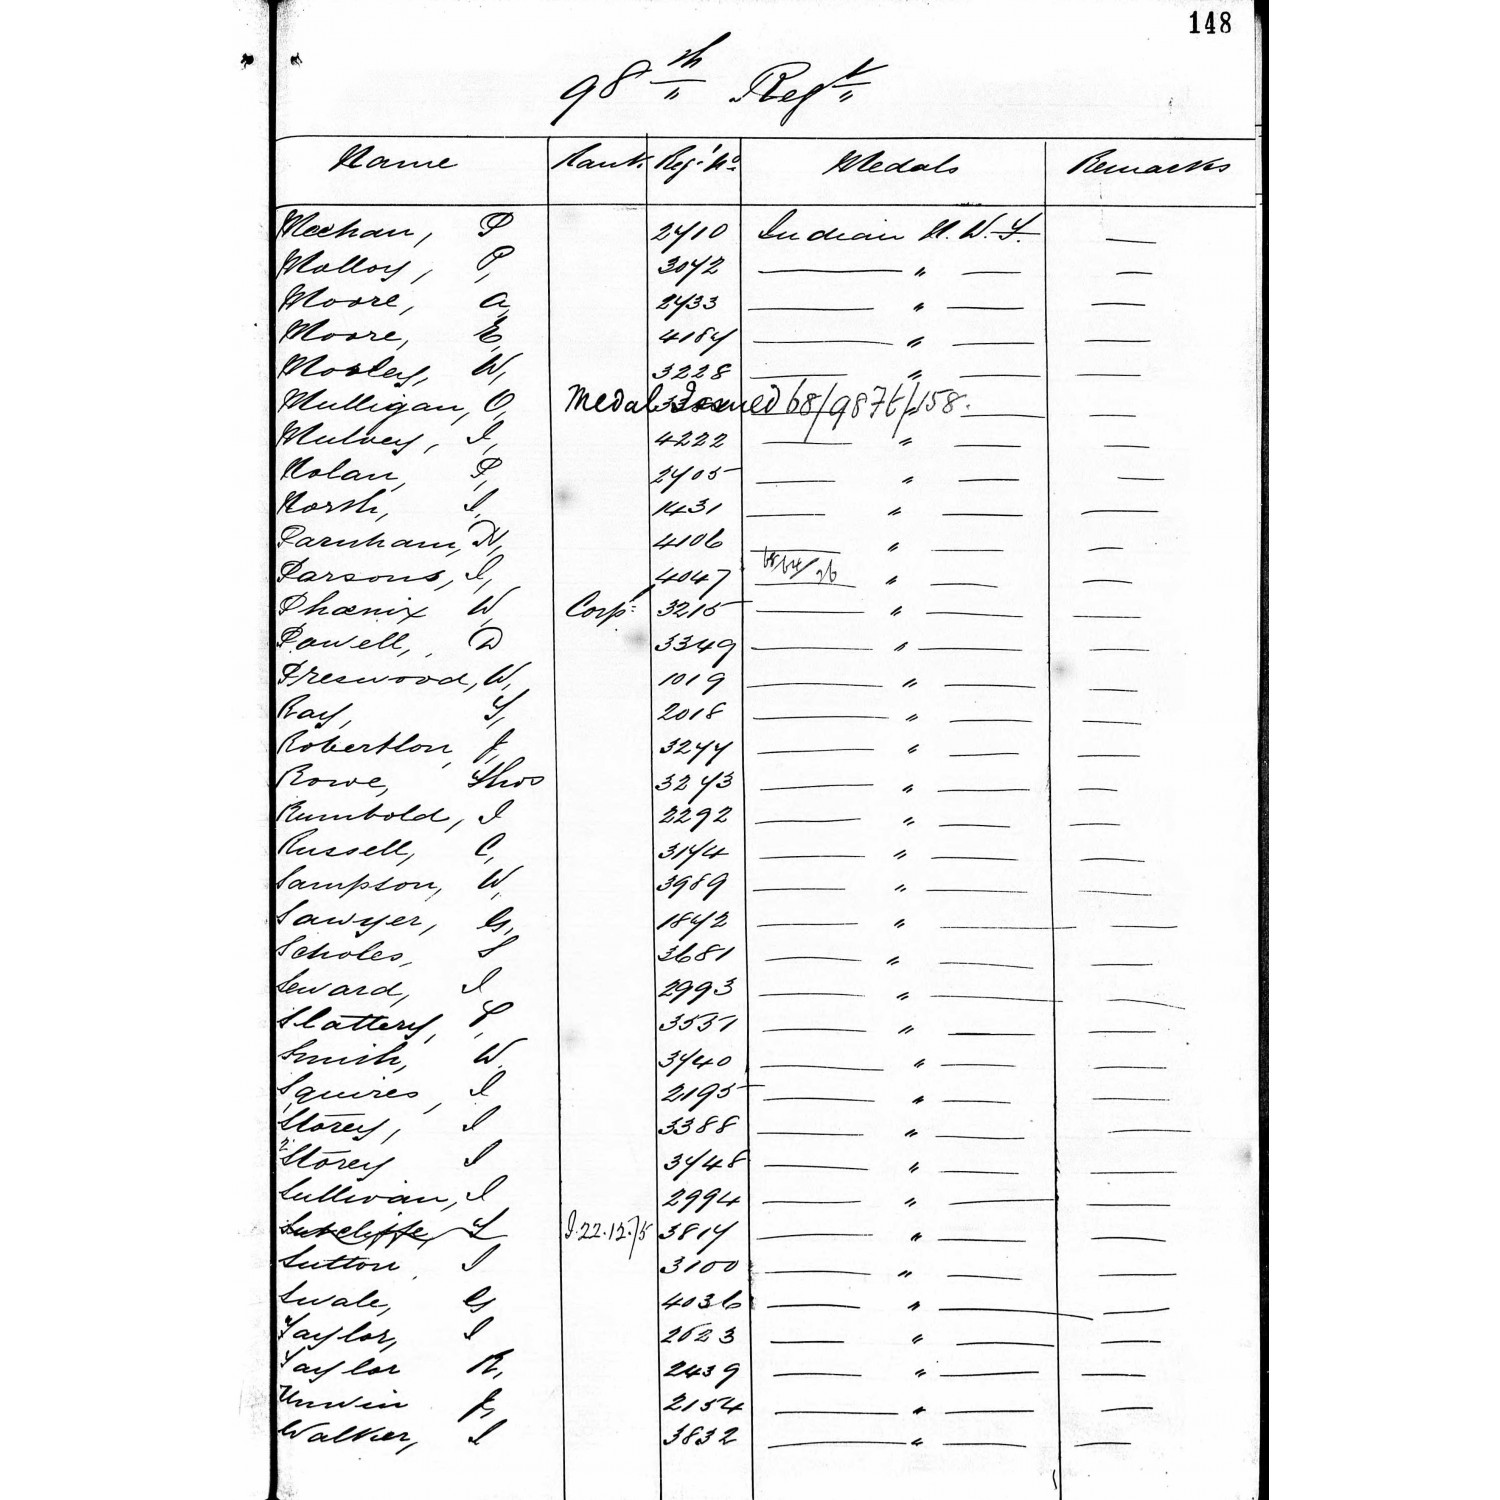 148
98th Regt
Name Rank Regl No Medals Remarks
Meehan, P 2710 Indian N.W.F. —
Molloy, P, 3072 — " — —
Moore, A, 2733 — " — —
Moore, E, 4187 — " — —
Mosley, W, 3228 — " — —
Mulligan, O, Medal Issued 68/9876/158. —
Mulvey, J, 4222 — " —
Nolan, P, 2705 — " — —
North, J, 1431 — " — —
Parnham, W, 4106 — " — —
Parsons, J, 4047 68/64/26 " — —
Phœnix W, Corpl 3215 — " — —
Powell, D 3349 — " — —
Preswood, W, 1019 — " — —
Ray, T, 2018 — " — —
Robertson, J, 3277 — " — —
Rowe, Thos 3273 — " — —
Rumbold, J 2292 — " — —
Russell, C, 3174 — " — —
Sampson, W, 3989 — " — —
Sawyer, G, 1872 — " — —
Scholes, S 3681 — " — —
Seward, J 2993 — " — —
Slattery, P, 3531 — " — —
Smith, W. 3740 — " — —
Squires, J 2195 — " — —
Storey, J 3388 — " — —
2 Storey J 3748 — " — —
Sullivan, J 2994 — " — —
Sutcliffe, T 22.12.75 3817 — " — —
Sutton J 3100 — " — —
Swale, G 4036 — " — —
Taylor, J 2623 — " — —
Taylor R, 2439 — " — —
Unwin J, 2154 — " — —
Walker, J 3832 — " — —